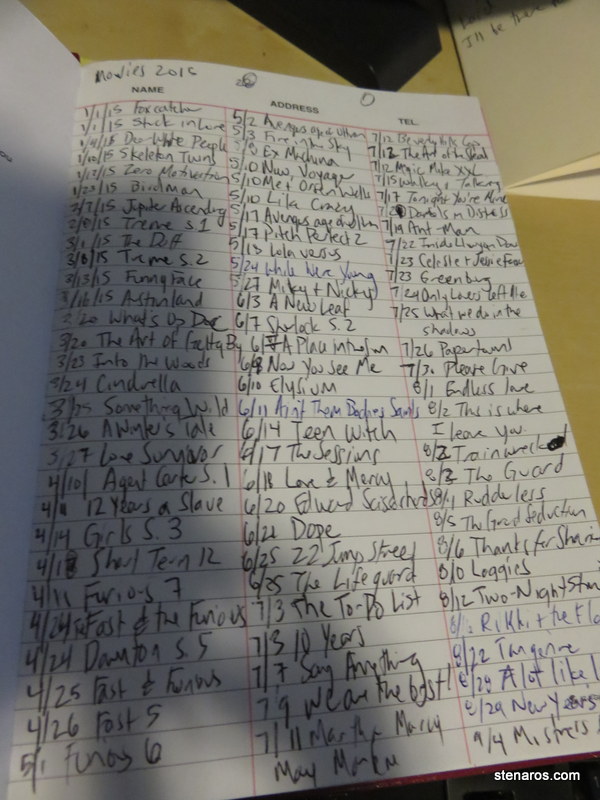 I'll be there
Movies 2015
NAME
ADDRESS
TEL.
1/1/15 Foxcatcher
1/1/15 Stuck in Love
Dear White People
1/10/15 Skeleton Twins
1/12/15 Zero Motivation
1/23/15 Birdman
2/7/15 Jupiter Ascending
Treme S.1
3/1/15 The Duff
3/8/15 Treme S.2
3/13/15 Funny Face
3/16/15 Austenland
What's Up Doc
3/20 The Art of Getting By
3/23 Into the Woods
3/24 Cinderella
3/25 Something Wild
3/26 A Winter's Tale
3/27 Lone Survivor
4/10 Agent Carter S.1
4/9 12 Years a Slave
4/14 Girls S.3
4/18 Short Term 12
4/11 Furious 7
4/24 Fast & the Furious
4/24 Downton S.5
4/25 Fast & Furious
4/26 Fast 5
5/1 Furious 6
5/2 Avengers age of Ultron
5/3 Fire in the Sky
5/9 Ex Machina
5/10 Now, Voyager
5/10 Me + Orson Welles
5/10 Like Crazy
5/17 Avengers age of Ultron
5/17 Pitch Perfect 2
5/18 Lola versus
5/24 While We're Young
5/27 Mikey + Nicky
6/3 A New Leaf
6/7 Sherlock S.2
A Place in the Sun
6/8 Now You See Me
6/10 Elysium
6/11 Ain't Them Bodies Saints
6/14 Teen Witch
6/17 The Sessions
6/18 Love & Mercy
6/20 Edward Scissorhands
6/21 Dope
6/25 22 Jump Street
6/25 The Lifeguard
7/3 The To-Do List
7/3 10 Years
7/7 Say Anything
7/9 We are the best!
7/11 Martha Marcy
May Marlene
7/12 Beverly Hills Cop
7/12 The Art of the Steal
7/12 Magic Mike XXL
7/15 Walking + Talking
7/17 Tonight You're Mine
Damsels in Distress
7/19 Ant-Man
7/22 Inside Llewyn Davis
7/23 Celeste + Jesse Forever
7/23 Greenburg
7/24 Only Lovers Left Alive
7/25 What we do in the
shadows
7/26 Papertowns
7/30 Please Give
8/1 Endless love
8/2 This is where
I leave you
8/2 Trainwreck
8/3 The Guard
Rudderless
8/5 The Grand Seduction
8/6 Thanks for Sharin
Loggies
8/12 Two-Night Stan
Rikki + the Fla
8/22 Tangerine
8/29 A lot like L
8/29 New Years
9/4 Mistress
stenaros.com